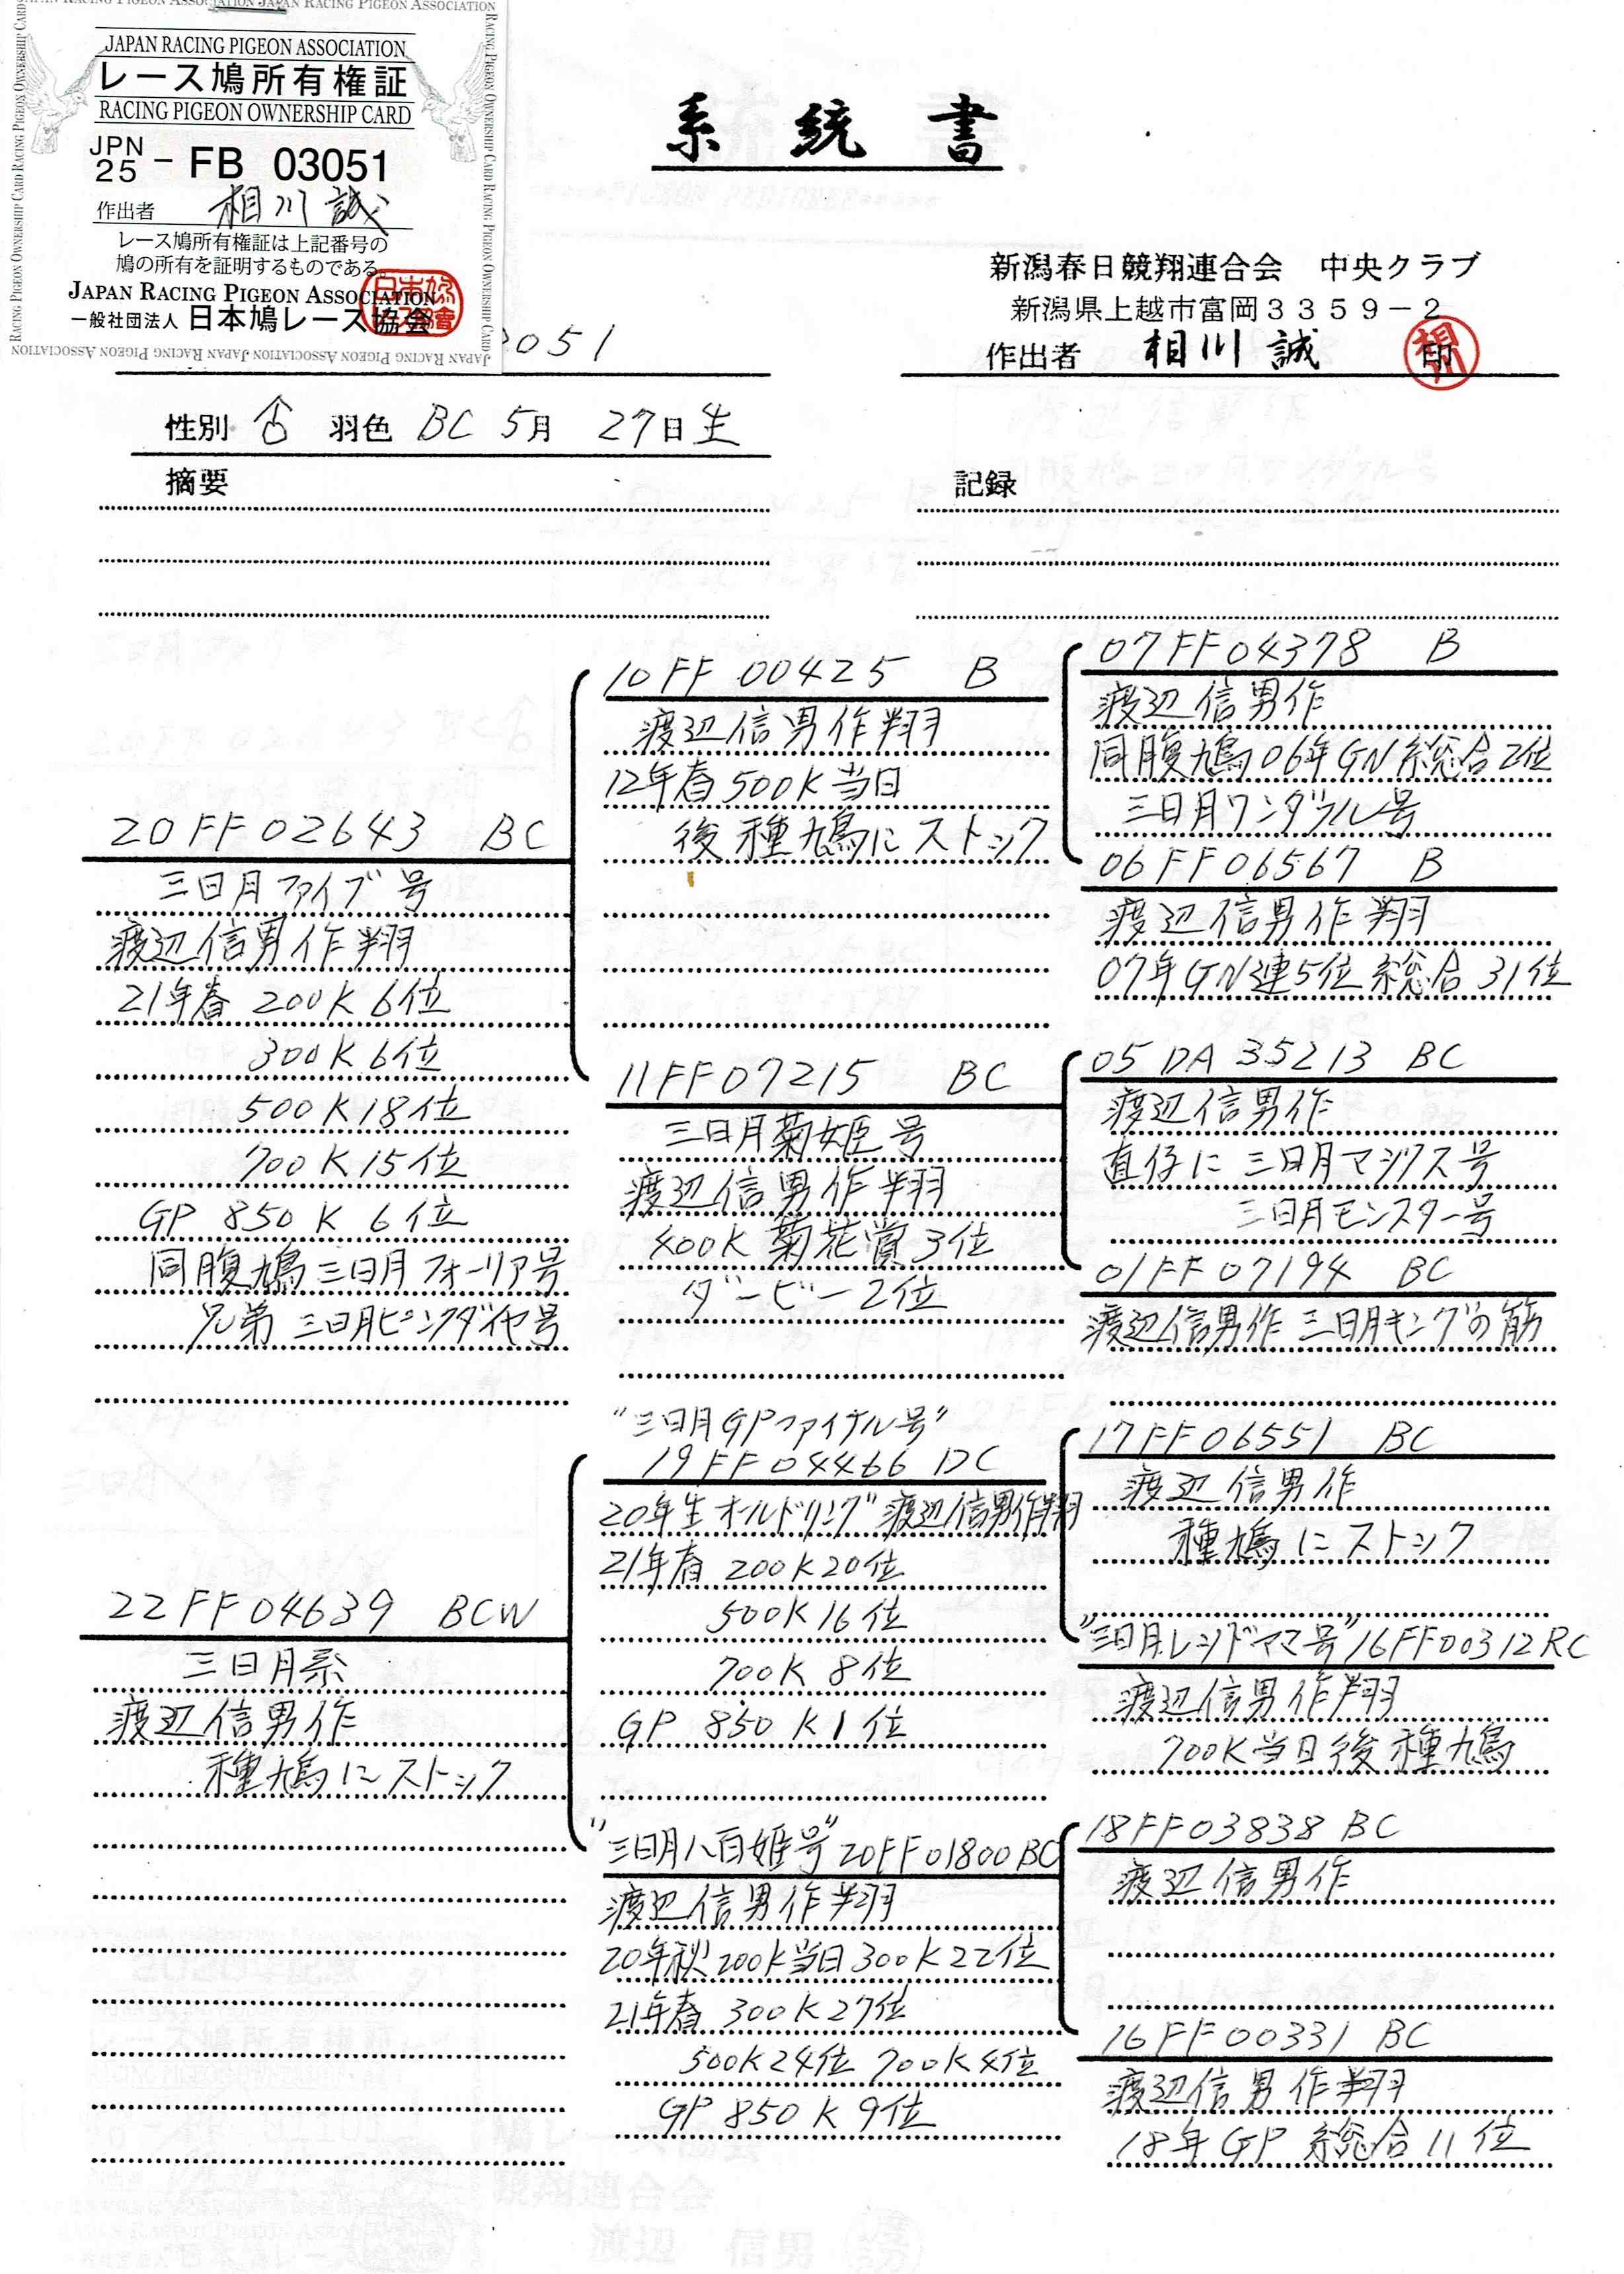 JAPAN RACING PIGEON ASSOCIATION
レース鳩所有権証
RACING PIGEON OWNERSHIP CARD
JPN 25 - FB 03051
作出者 相川誠
レース鳩所有権証は上記番号の
鳩の所有を証明するものである。
JAPAN RACING PIGEON ASSOCIATION
一般社団法人 日本鳩レース協会
系統書
新潟春日競翔連合会 中央クラブ
新潟県上越市富岡3359-2
作出者 相川 誠 印
051
性別 ♂ 羽色 BC 5月 27日生
摘要
記録
20FF02643 BC
三日月ファイブ号
渡辺信男作翔
21年春 200K 6位
300K 6位
500K 18位
700K 15位
GP 850K 6位
同腹鳩 三日月フォーリア号
兄弟 三日月ピンクダイヤ号
10FF 00425 B
渡辺信男作翔
12年春500K当日
後種鳩にストック
07FF04378 B
渡辺信男作
同腹鳩06年GN総合2位
三日月ワンダフル号
06FF06567 B
渡辺信男作翔
07年GN連5位総合31位
11FF07215 BC
三日月菊姫号
渡辺信男作翔
400K 菊花賞3位
ダービー2位
05DA35213 BC
渡辺信男作
直仔に三日月マジックス号
三日月モンスター号
01FF07194 BC
渡辺信男作 三日月キングの筋
22FF04639 BCW
三日月系
渡辺信男作
種鳩にストック
"三日月GPファイナル号"
19FF04466 DC
20年生オールドリング 渡辺信男作翔
21年春 200K20位
500K16位
700K 8位
GP 850K 1位
17FF06551 BC
渡辺信男作
種鳩にストック
"三日月レッドママ号" 16FF00312 RC
渡辺信男作翔
700K当日後種鳩
"三日月八百姫号" 20FF01800 BC
渡辺信男作翔
20年秋200K当日300K22位
21年春 300K27位
500K24位 700K4位
GP 850K 9位
18FF03838 BC
渡辺信男作
16FF00331 BC
渡辺信男作翔
18年GP総合11位